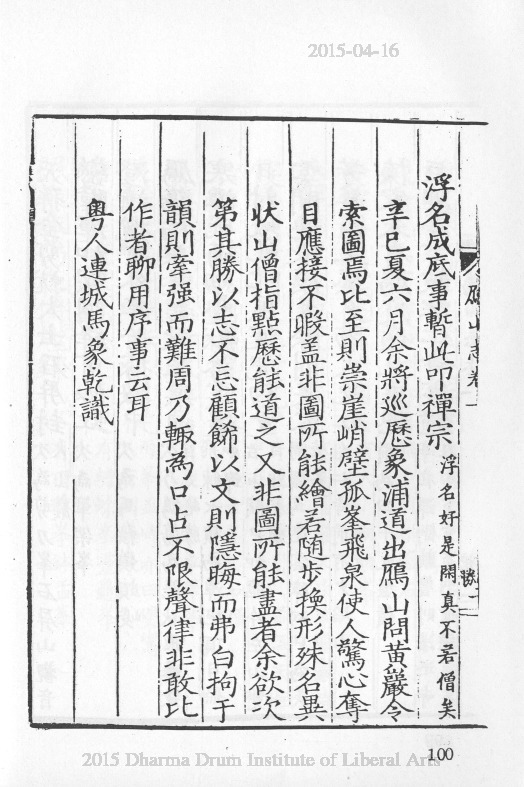 2015-04-16
鴈山志卷一
浮名成底事暫此叩禪宗 浮名好是閑真不若僧矣
辛巳夏六月余將巡歷象浦道出鴈山問黃巖令
索圖焉比至則崇崖峭壁孤峯飛泉使人驚心奪
目應接不暇盖非圖所能繪若随步換形殊名異
狀山僧指點歷能道之又非圖所能盡者余欲次
第其勝以志不忘顧餙以文則隱晦而弗白拘于
韻則牽强而難周乃輙為口占不限聲律非敢比
作者聊用序事云耳
粤人連城馬象乾識
100
2015 Dharma Drum Institute of Liberal Arts